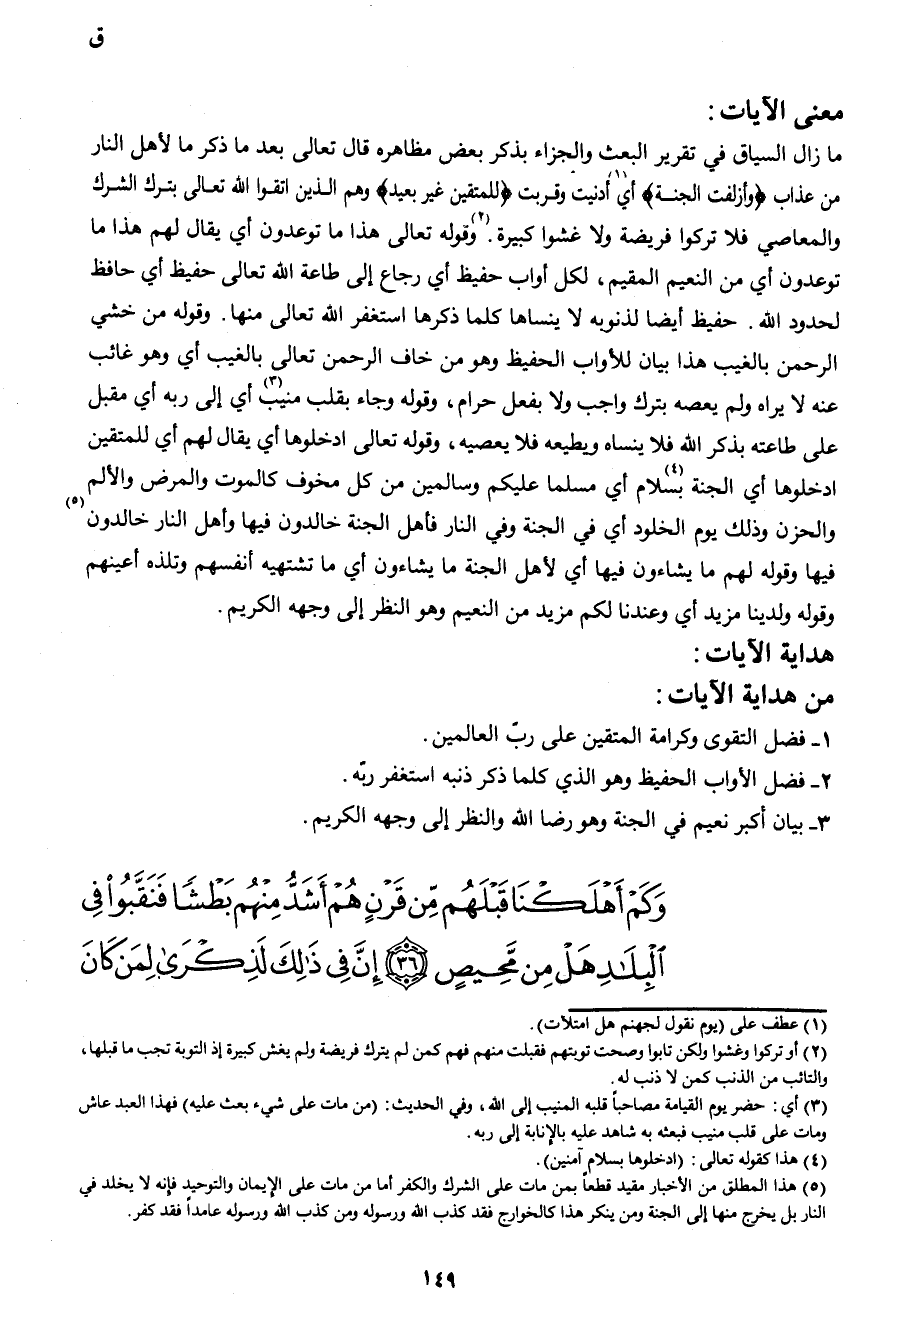 ق
معنى الآيات :
ما زال السياق في تقرير البعث والجزاء بذكر بعض مظاهره قال تعالى بعد ما ذكر ما لأهل النار
من عذاب ﴿وأزلفت الجنـة﴾ أي(١) أدنيت وقـربت ﴿للمتقين غير بعيد﴾ وهم الـذين اتقـوا الله تعـالى بتـرك الشـرك
والمعاصي فلا تركوا فريضة ولا غشوا كبيرة.(٢) وقوله تعالى هذا ما توعدون أي يقال لهم هذا ما
توعدون أي من النعيم المقيم، لكل أواب حفيظ أي رجاع إلى طاعة الله تعالى حفيظ أي حافظ
لحدود الله. حفيظ أيضا لذنوبه لا ينساها كلما ذكرها استغفر الله تعالى منها. وقوله من خشي
الرحمن بالغيب هذا بيان للأواب الحفيظ وهو من خاف الرحمن تعالى بالغيب أي وهو غائب
عنه لا يراه ولم يعصه بترك واجب ولا بفعل حرام، وقوله وجاء بقلب منيب(٣) أي إلى ربه أي مقبل
على طاعته بذكر الله فلا ينساه ويطيعه فلا يعصيه، وقوله تعالى ادخلوها أي يقال لهم أي للمتقين
ادخلوها أي الجنة بسلام(٤) أي مسلما عليكم وسالمين من كل مخوف كالموت والمرض والألم
والحزن وذلك يوم الخلود أي في الجنة وفي النار فأهل الجنة خالدون فيها وأهل النار خالدون(٥)
فيها وقوله لهم ما يشاءون فيها أي لأهل الجنة ما يشاءون أي ما تشتهيه أنفسهم وتلذه أعينهم
وقوله ولدينا مزيد أي وعندنا لكم مزيد من النعيم وهو النظر إلى وجهه الكريم.
هداية الآيات :
من هداية الآيات :
١ـ فضل التقوى وكرامة المتقين على ربّ العالمين.
٢ـ فضل الأواب الحفيظ وهو الذي كلما ذكر ذنبه استغفر ربّه.
٣ـ بيان أكبر نعيم في الجنة وهو رضا الله والنظر إلى وجهه الكريم.
وَكَمْ أَهْلَكْنَا قَبْلَهُم مِّن قَرْنٍ هُمْ أَشَدُّ مِنْهُم بَطْشًا فَنَقَّبُوا۟ فِى
ٱلْبِلَـٰدِ هَلْ مِن مَّحِيصٍ ﴿٣٦﴾ إِنَّ فِى ذَٰلِكَ لَذِكْرَىٰ لِمَن كَانَ
(١) عطف على (يوم نقول لجهنم هل امتلأت).
(٢) أو تركوا وغشوا ولكن تابوا وصحت توبتهم فقبلت منهم فهم كمن لم يترك فريضة ولم يغش كبيرة إذ التوبة تجب ما قبلها،
والتائب من الذنب كمن لا ذنب له.
(٣) أي: حضر يوم القيامة مصاحباً قلبه المنيب إلى الله، وفي الحديث: (من مات على شيء بعث عليه) فهذا العبد عاش
ومات على قلب منيب فبعثه به شاهد عليه بالإنابة إلى ربه.
(٤) هذا كقوله تعالى: (ادخلوها بسلام آمنين).
(٥) هذا المطلق من الأخبار مقيد قطعاً بمن مات على الشرك والكفر أما من مات على الإيمان والتوحيد فإنه لا يخلد في
النار بل يخرج منها إلى الجنة ومن ينكر هذا كالخوارج فقد كذب الله ورسوله ومن كذب الله ورسوله عامداً فقد كفر.
١٤٩